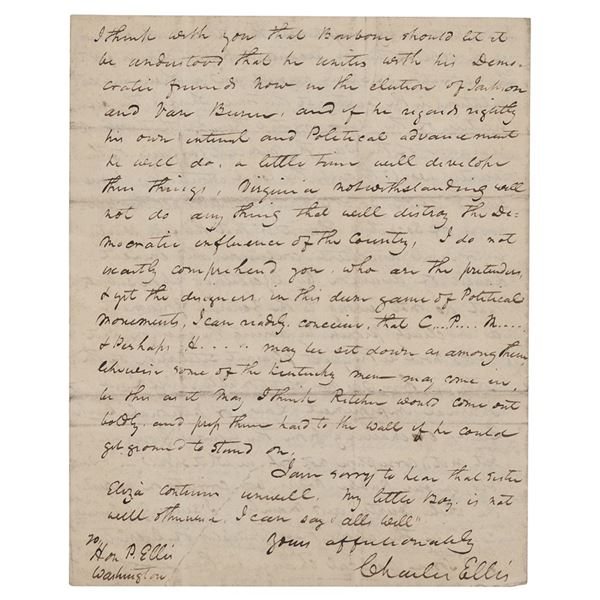 I think with you that Barbour should let it
be understood that he unites with his Demo-
cratic friends now in the election of Jackson
and Van Buren, and if he regards rightly
his own interest and Political advancement
he will do. a little time will develope
these things, Virginia notwithstanding will
not do any thing that will distroy the De-
mocratic influence of the Country, I do not
exactly comprehend you. who are the pretenders,
& yet the designers in this deep game of Political
movements, I can readily conceive, that C....P....M.....
& Perhaps H..... may be set down as among them
likewise some of the Kentucky men may come in,
be this as it may I think Ritchie would come out
boldly. and press them hard to the wall if he could
get ground to stand on.
I am sorry to hear that sister
Eliza continues unwell. My little Boy. is not
well otherwise I can say "alls well"
yours affectionately
Charles Ellis
To
Hon P. Ellis
Washington